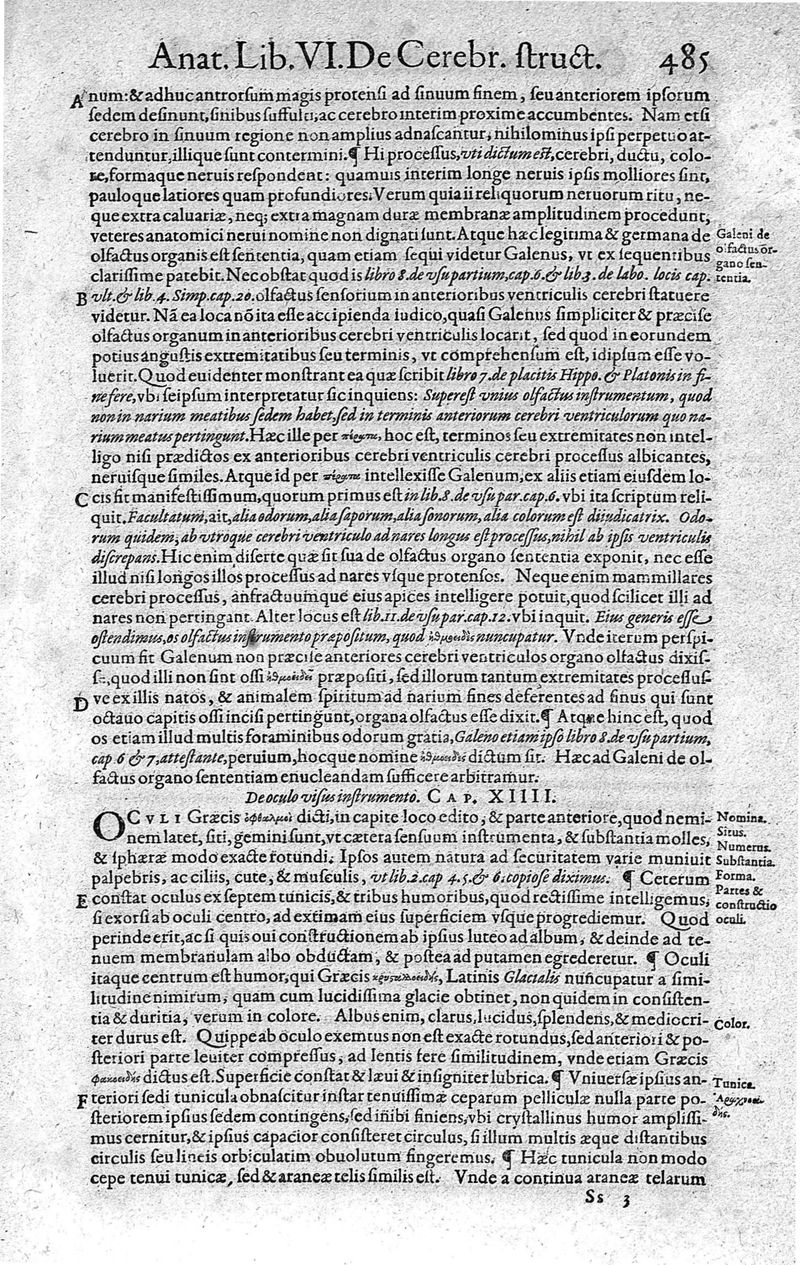 Anat. Lib. VI. De Cerebr. ſtruct. 485
A num: & adhuc antrorſum magis protenſi ad ſinuum finem, ſeu anteriorem ipſorum
ſedem deſinunt, ſinibus ſuffulti, ac cerebro interim proxime accumbentes. Nam etſi
cerebro in ſinuum regione non amplius adnaſcantur, nihilominus ipſi perpetuo at-
tenduntur, illique ſunt contermini. ¶ Hi proceſſus, vti dictum eſt, cerebri, ductu, colo-
re, formaque neruis reſpondent: quamuis interim longe neruis ipſis molliores ſint,
pauloque latiores quam profundiores. Verum quia ii reliquorum neruorum ritu, ne-
que extra caluariæ, neq; extra magnam duræ membranæ amplitudinem procedunt,
veteres anatomici nerui nomine non dignati ſunt. Atque hæc legitima & germana de
Galeni de
olfactus or-
gano ſen-
tentia.
olfactus organis eſt ſententia, quam etiam ſequi videtur Galenus, vt ex ſequentibus
clariſſime patebit. Nec obſtat quod is libro 8. de vſu partium, cap. 6. & lib 3. de labo. locis cap.
B vlt. & lib. 4. Simp. cap. 20. olfactus ſenſorium in anterioribus ventriculis cerebri ſtatuere
videtur. Nã ea loca nõ ita eſſe accipienda iudico, quaſi Galenus ſimpliciter & præciſe
olfactus organum in anterioribus cerebri ventriculis locarit, ſed quod in eorundem
potius anguſtis extremitatibus ſeu terminis, vt comprehenſum eſt, id ipſum eſſe vo-
luerit. Quod euidenter monſtrant ea quæ ſcribit libro 7. de placitis Hippo. & Platonis in fi-
ne fere, vbi ſeipſum interpretatur ſic inquiens: Supereſt vnius olfactus inſtrumentum, quod
non in narium meatibus ſedem habet, ſed in terminis anteriorum cerebri ventriculorum quo na-
rium meatus pertingunt. Hæc ille per hoc eſt, terminos ſeu extremitates non intel-
ligo niſi prædictos ex anterioribus cerebri ventriculis cerebri proceſſus albicantes,
neruiſque ſimiles. Atque id per intellexiſſe Galenum, ex aliis etiam eiuſdem lo-
C cis fit manifeſtiſſimum, quorum primus eſt in lib. 8. de vſu par. cap. 6. vbi ita ſcriptum reli-
quit. Facultatum, ait, alia odorum, alia ſaporum, alia ſonorum, alia colorum eſt diiudicatrix. Odo-
rum quidem, ab vtroque cerebri ventriculo ad nares longus eſt proceſſus, nihil ab ipſis ventriculis
diſcrepans. Hic enim diſerte quæ ſit ſua de olfactus organo ſententia exponit, nec eſſe
illud niſi longos illos proceſſus ad nares vſque protenſos. Neque enim mammillares
cerebri proceſſus, anfractuumque eius apices intelligere potuit, quod ſcilicet illi ad
nares non pertingant. Alter locus eſt lib. 11. de vſu par. cap. 12. vbi inquit. Eius generis eſſe
oſtendimus, os olfactus inſtrumento præpoſitum, quod nuncupatur. Vnde iterum perſpi-
cuum fit Galenum non præciſe anteriores cerebri ventriculos organo olfactus dixiſ-
ſe, quod illi non ſint oſſi præpoſiti, ſed illorum tantum extremitates proceſſuſ-
D ve ex illis natos, & animalem ſpiritum ad narium fines deferentes ad ſinus qui ſunt
octauo capitis oſſi inciſi pertingunt, organa olfactus eſſe dixit. ¶ Atque hinc eſt, quod
os etiam illud multis foraminibus odorum gratia, Galeno etiam ipſo libro 8. de vſu partium,
cap. 6 & 7, atteſtante, peruium, hocque nomine dictum ſit. Hæc ad Galeni de ol-
factus organo ſententiam enucleandam ſufficere arbitramur.
De oculo viſus inſtrumento. CAP. XIIII.
OCVLI Græcis ὀφθαλμοὶ dicti, in capite loco edito, & parte anteriore, quod nemi-
Nomina.
nem latet, ſiti, gemini ſunt, vt cætera ſenſuum inſtrumenta, & ſubſtantia molles,
Situs.
Numerus.
& ſphæræ modo exacte rotundi. Ipſos autem natura ad ſecuritatem varie muniuit
Subſtantia.
palpebris, ac ciliis, cute, & muſculis, vt lib. 2. cap 4. 5. & 6. copioſe diximus. ¶ Ceterum
Forma.
Partes &
conſtructio
oculi.
E conſtat oculus ex ſeptem tunicis, & tribus humoribus, quod rectiſſime intelligemus,
ſi exorſi ab oculi centro, ad extimam eius ſuperficiem vſque progrediemur. Quod
perinde erit, ac ſi quis oui conſtructionem ab ipſius luteo ad album, & deinde ad te-
nuem membranulam albo obductam, & poſtea ad putamen egrederetur. ¶ Oculi
itaque centrum eſt humor, qui Græcis κρυσταλλοειδὴς, Latinis Glacialis nuncupatur a ſimi-
litudine nimirum, quam cum lucidiſſima glacie obtinet, non quidem in conſiſten-
tia & duritia, verum in colore. Albus enim, clarus, lucidus, ſplendens, & mediocri-
Color.
ter durus eſt. Quippe ab oculo exemtus non eſt exacte rotundus, ſed anteriori & po-
ſteriori parte leuiter compreſſus, ad lentis fere ſimilitudinem, vnde etiam Græcis
φακοειδὴς dictus eſt. Superficie conſtat & læui & inſigniter lubrica. ¶ Vniuerſæ ipſius an-
Tunica.
F teriori ſedi tunicula obnaſcitur inſtar tenuiſſimæ ceparum pelliculæ nulla parte po-
ſteriorem ipſius ſedem contingens, ſed inibi finiens, vbi cryſtallinus humor ampliſſi-
mus cernitur, & ipſius capacior conſiſteret circulus, ſi illum multis æque diſtantibus
circulis ſeu lineis orbiculatim obuolutum fingeremus. ¶ Hæc tunicula non modo
cepe tenui tunicæ, ſed & araneæ telis ſimilis eſt. Vnde a continua araneæ telarum
Ss 3